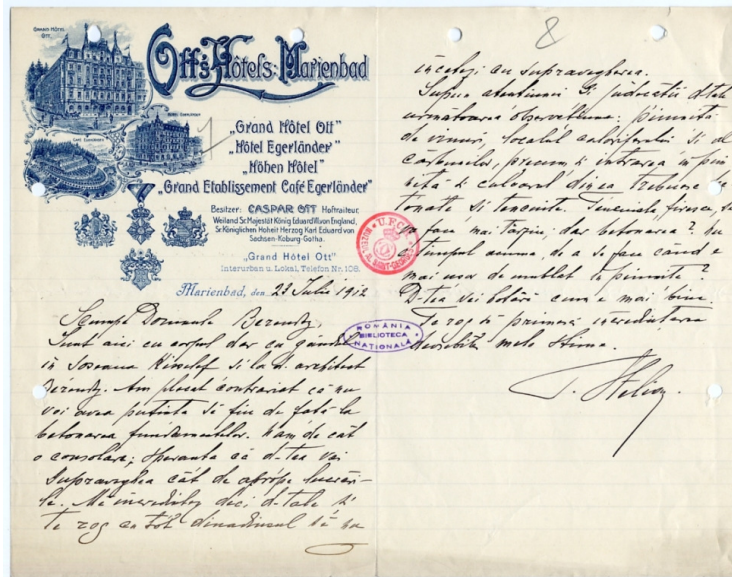 GRAND HÔTEL
OTT.
Ott's Hôtels: Marienbad
HÔTEL EGERLÄNDER
CAFÉ EGERLÄNDER
„Grand Hôtel Ott“
„Hôtel Egerländer“
„Höhen Hôtel“
„Grand Etablissement Café Egerländer“
Besitzer: CASPAR OTT Hoftraiteur,
Weiland Sr. Majestät König Eduard VII. von England,
Sr. Königlichen Hoheit Herzog Karl Eduard von
Sachsen-Koburg-Gotha.
„Grand Hôtel Ott“
Interurban u. Lokal, Telefon Nr. 108.
Marienbad, den 23 Iulie 1912
Scumpe Domnule Berindey,
Sunt aici cu corpul dar cu gândul
în Soseaua Kiselef si la d. architect
Berindey. Am plecat contrariat că nu
voi avea putinta să fiu de fată la
betonarea fundamentelor. N'am de cât
o consolare; speranta că d-tea vei
supraveghea cât de aprópe lucrări-
le. Me încredintez deci d-tale si
te rog cu tot dinadinsul să nu
8
încetezi cu supravegherea.
Supun atentiunei si judecătii d-tale
urmatoarea observatiune: pimnita
de vinuri, localul caloriferului si al
carbunilor, precum si intrarea în pim
nită si culoarul din ea trebuesc be
tonate si tencuite. Tencuiala, firesce, se
va face mai târziu; dar betonarea? nu
e timpul acuma, de a se face când e
mai usor de umblat in pimnite?
D-tea vei hotărî cum e mai bine.
Te rog să primesci încredintarea
deosebitei mele stime.
ROMÂNIA
BIBLIOTECA
NATIONALĂ